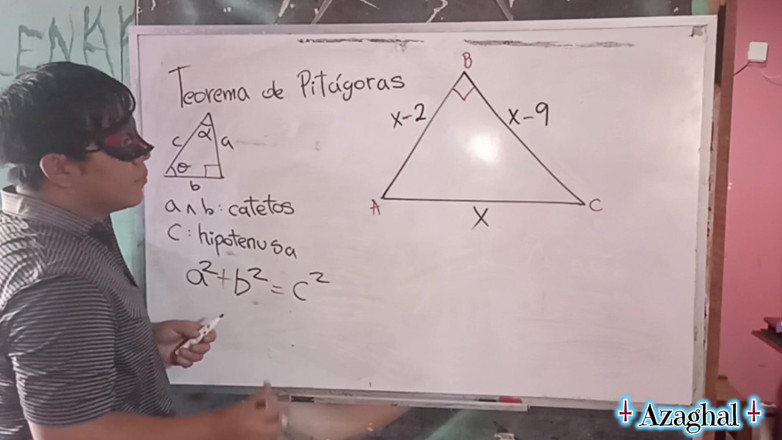 LENAR
Teorema de Pitágoras
c α a
θ
b
a ∧ b : catetos
C : hipotenusa
a²+b²=c²
B
x-2 x-9
A C
X
Azaghal